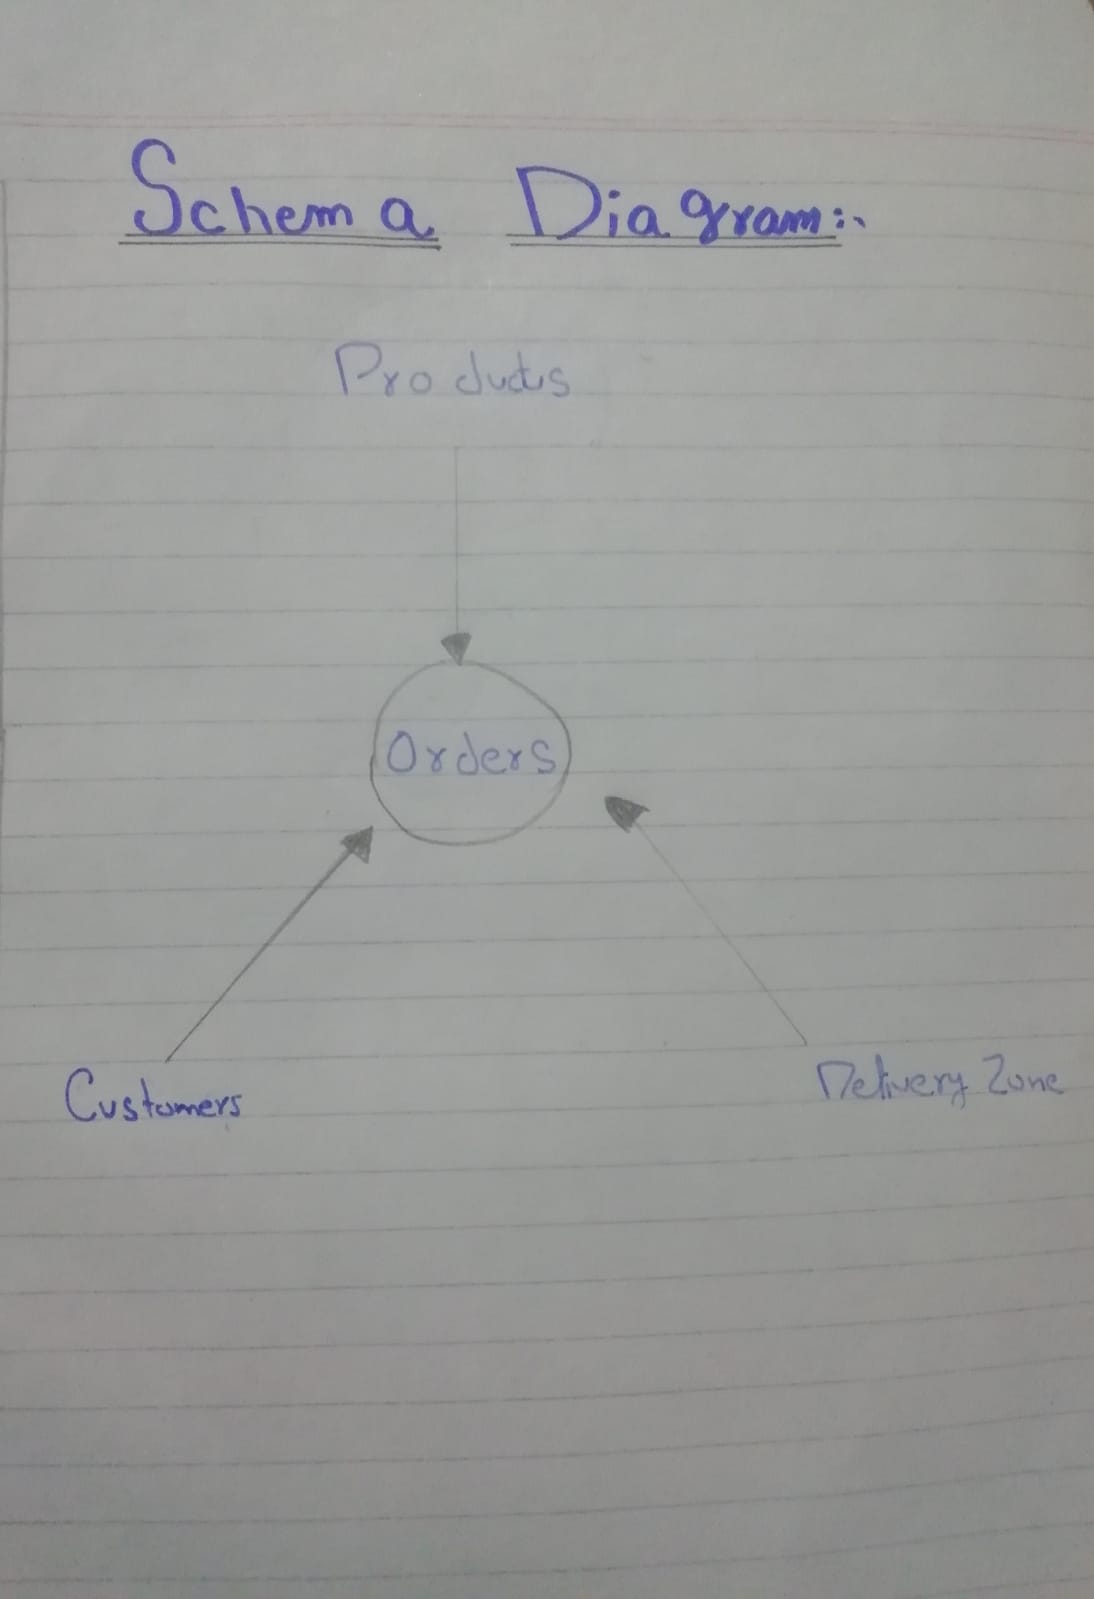 Schema Diagram:-
Products
Orders
Customers
Delivery Zone